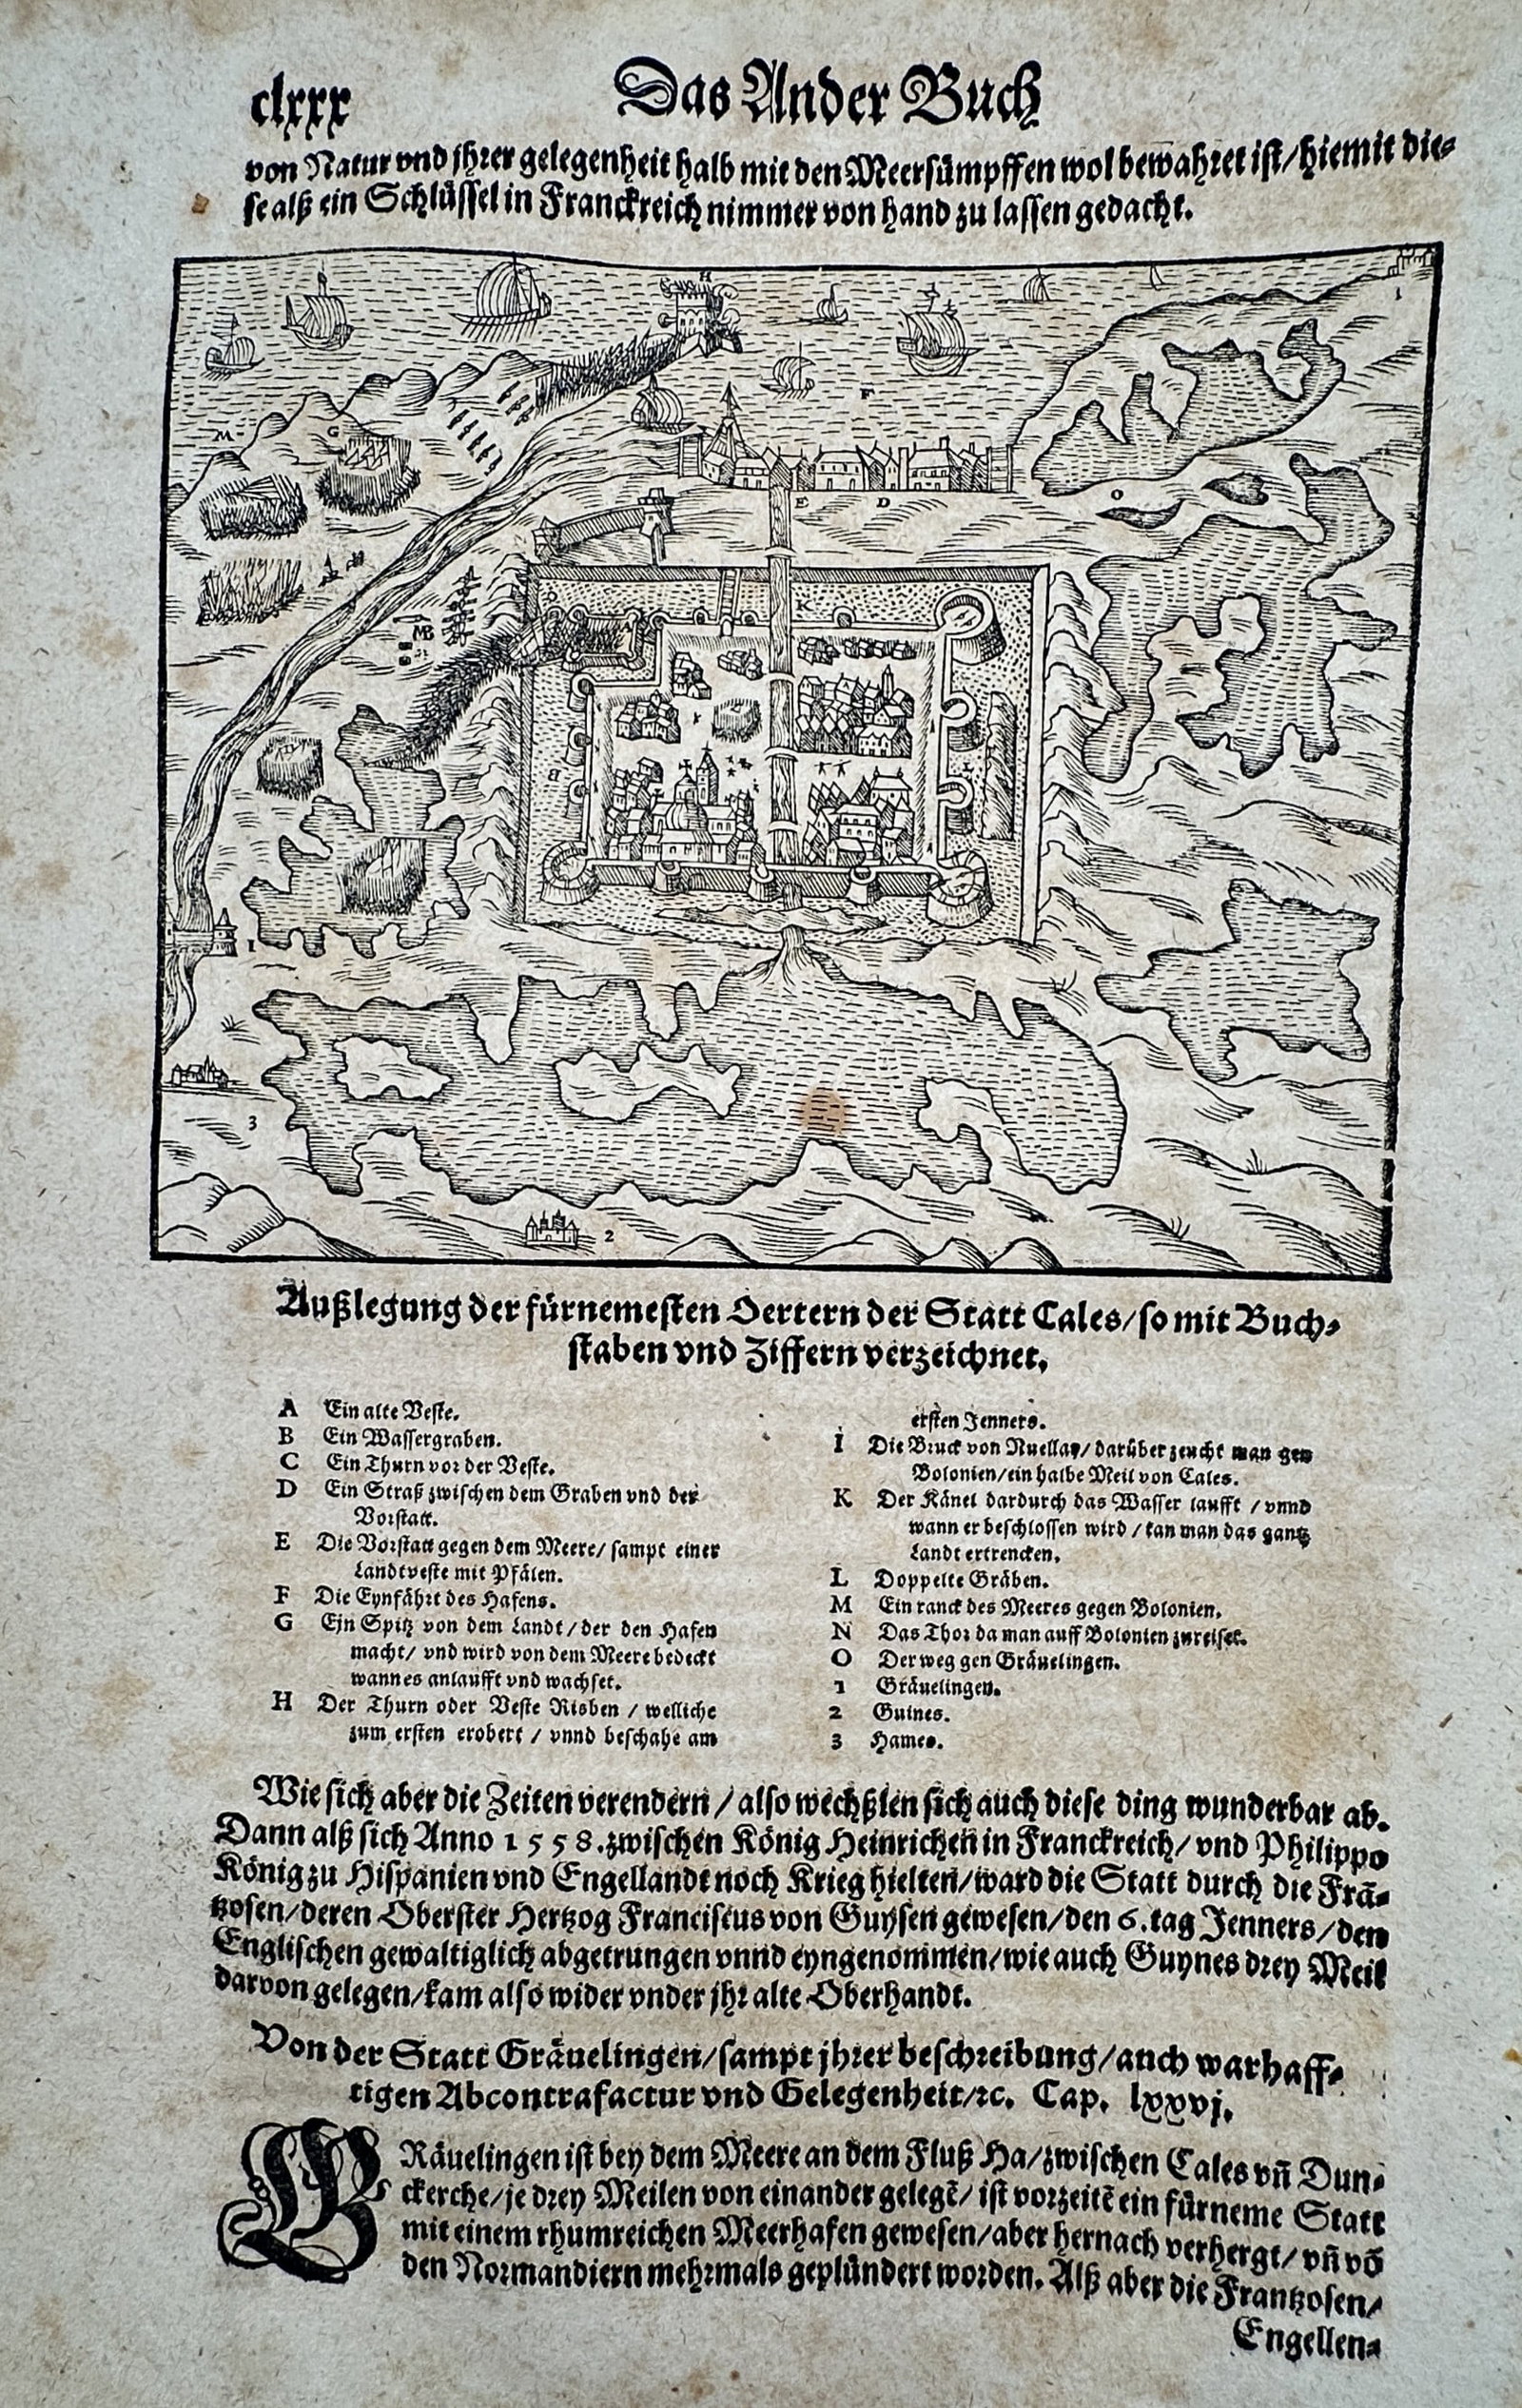 clxxx
Das Ander Buch
von Natur vnd jhrer gelegenheit halb mit den Meersümpffen wol bewahret ist/ hiemit die-
se alß ein Schlüssel in Franckreich nimmer von hand zu lassen gedacht.
H
1
F
M
G
O
E D
K
B
1
3
2
Außlegung der fürnemesten Oertern der Statt Cales/ so mit Buch-
staben vnd Ziffern verzeichnet.
A Ein alte Veste.
B Ein Wassergraben.
C Ein Thurn vor der Veste.
D Ein Straß zwischen dem Graben vnd der
Vorstatt.
E Die Vorstatt gegen dem Meere/ sampt einer
Landtveste mit Pfälen.
F Die Eynfährt des Hafens.
G Ein Spitz von dem Landt/ der den Hafen
macht/ vnd wird von dem Meere bedeckt
wann es anlaufft vnd wachset.
H Der Thurn oder Veste Risben / welliche
zum ersten erobert / vnnd beschahe am
ersten Jenners.
I Die Bruck von Nuellay/ darüber zeucht man gen
Bolonien/ ein halbe Meil von Cales.
K Der Känel dardurch das Wasser laufft / vnnd
wann er beschlossen wird / kan man das gantz
Landt ertrencken.
L Doppelte Gräben.
M Ein ranck des Meeres gegen Bolonien.
N Das Thor da man auff Bolonien zureiset.
O Der weg gen Gräuelingen.
1 Gräuelingen.
2 Guines.
3 Hames.
Wie sich aber die Zeiten verendern / also wechßlen sich auch diese ding wunderbar ab.
Dann alß sich Anno 1558. zwischen König Heinrichen in Franckreich/ vnd Philippo
König zu Hispanien vnd Engellandt noch Krieg hielten/ ward die Statt durch die Frā-
tzosen/ deren Oberster Hertzog Franciscus von Guysen gewesen/ den 6. tag Jenners/ den
Englischen gewaltiglich abgetrungen vnnd eyngenommen/ wie auch Guynes drey Meil
darvon gelegen/ kam also wider vnder jhr alte Oberhandt.
Von der Statt Gräuelingen/ sampt jhrer beschreibung/ auch warhaff-
tigen Abcontrafactur vnd Gelegenheit/ ꝛc. Cap. lxxvj.
GRäuelingen ist bey dem Meere an dem Fluß Ha/ zwischen Cales vn̄ Dun-
ckerche/ je drey Meilen von einander gelegē/ ist vorzeitē ein fürneme Statt
mit einem rhumreichen Meerhafen gewesen/ aber hernach verhergt/ vn̄ vō
den Normandiern mehrmals geplündert worden. Alß aber die Frantzosen/
Engellen-